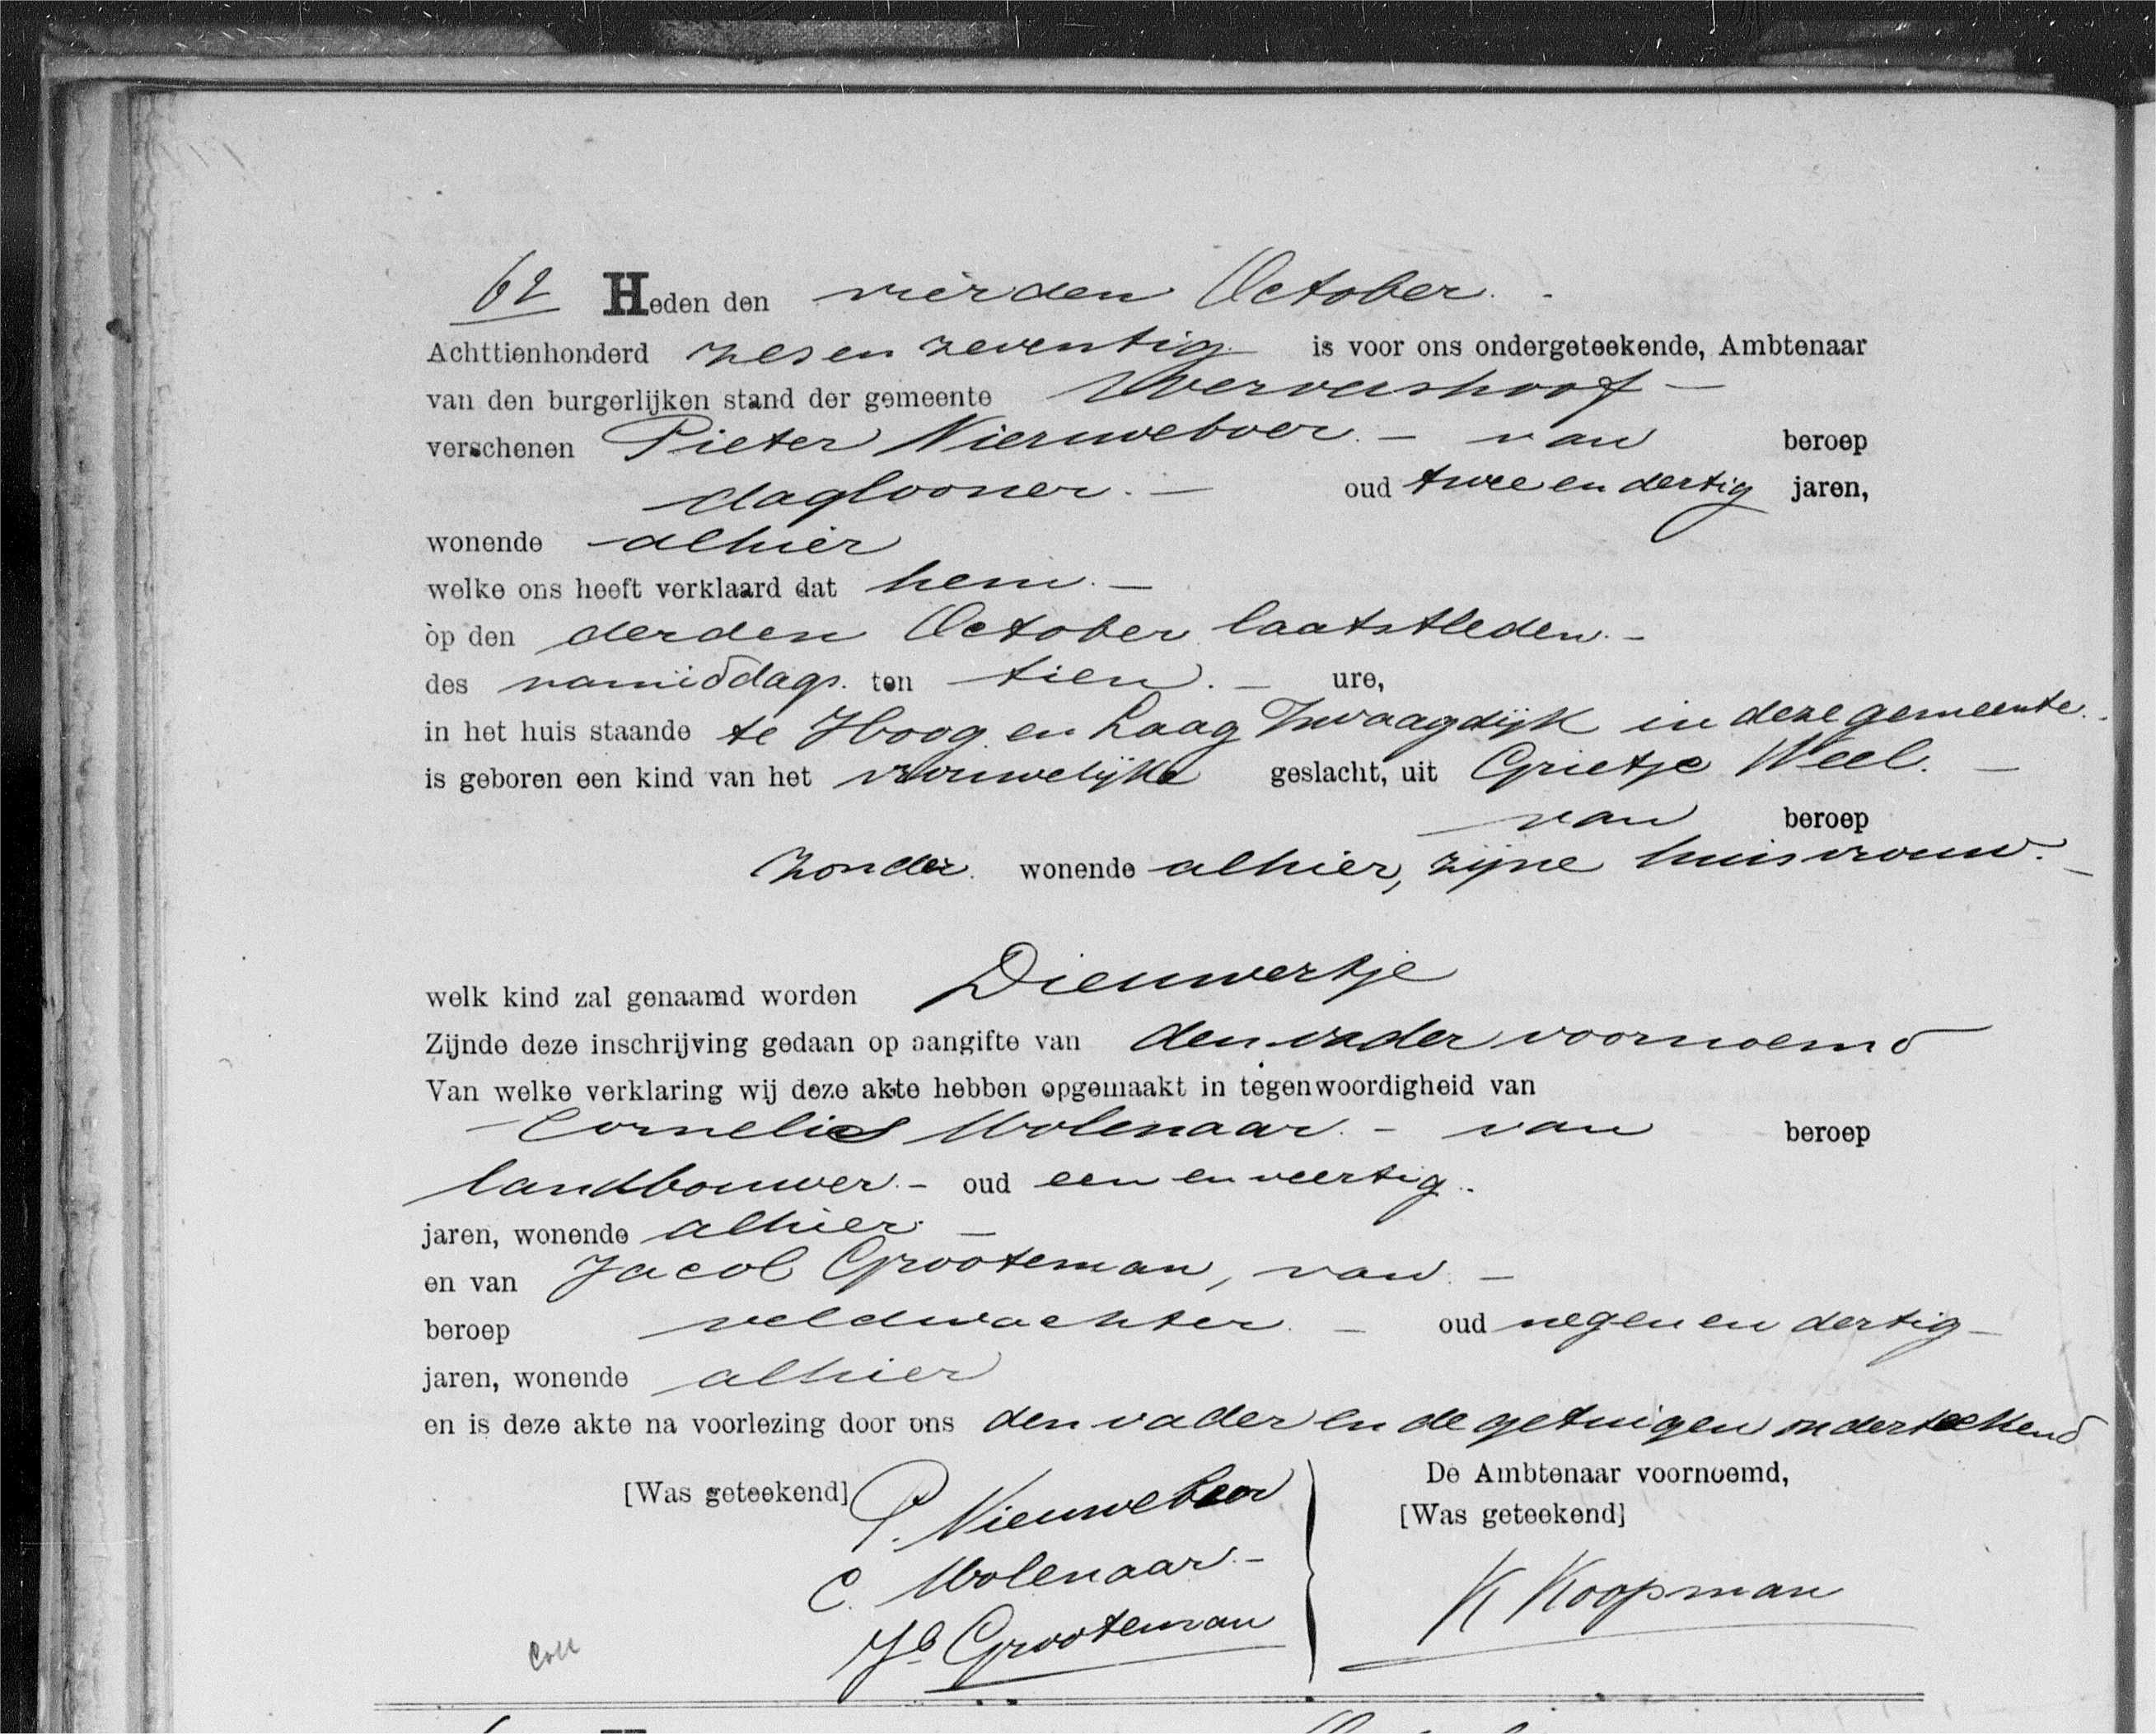 62 Heden den vierden October. -
Achttienhonderd zesenzeventig is voor ons ondergeteekende, Ambtenaar
van den burgerlijken stand der gemeente Wervershoof -
verschenen Pieter Nieuweboer. - van beroep
daglooner. - oud twee en dertig jaren,
wonende alhier
welke ons heeft verklaard dat hem. -
op den derden October laatstleden. -
des namiddags. ten tien. - ure,
in het huis staande te Hoog en Laag Zwaagdijk in deze gemeente.
is geboren een kind van het vrouwelijke geslacht, uit Grietje Weel. -
van beroep
zonder. wonende alhier, zijne huisvrouw. -
welk kind zal genaamd worden Dieuwertje
Zijnde deze inschrijving gedaan op aangifte van den vader voornoemd
Van welke verklaring wij deze akte hebben opgemaakt in tegenwoordigheid van
Cornelis Molenaar. - van beroep
landbouwer. - oud een en veertig.
jaren, wonende alhier. -
en van Jacob Grooteman, van. -
beroep veldwachter. - oud negen en dertig -
jaren, wonende alhier
en is deze akte na voorlezing door ons den vader en de getuigen onderteekend
De Ambtenaar voornoemd,
[Was geteekend] P. Nieuweboer
[Was geteekend]
C. Molenaar. -
K Koopman
Jb Grooteman
Coll